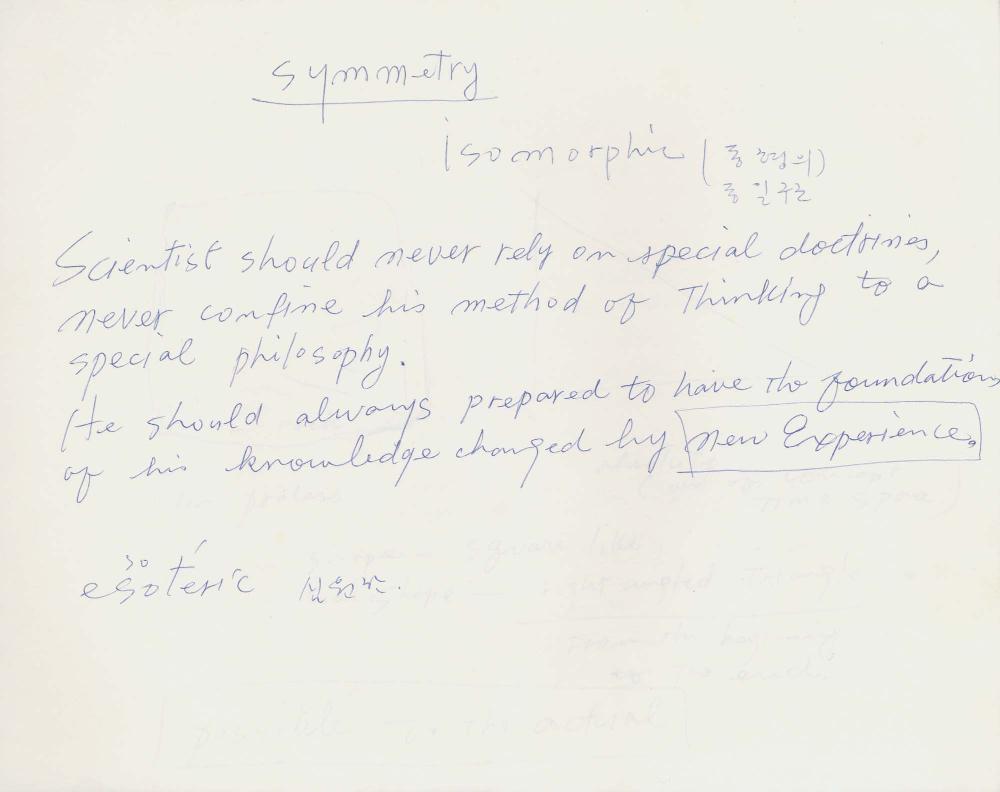 symmetry
isomorphic (동형의)
동일구조
Scientist should never rely on special doctrines,
never confine his method of Thinking to a
special philosophy.
He should always prepared to have the foundations
of his knowledge changed by new Experience.
so
esóteric 심원한.
square like
right angled Triangle
possible to the actual